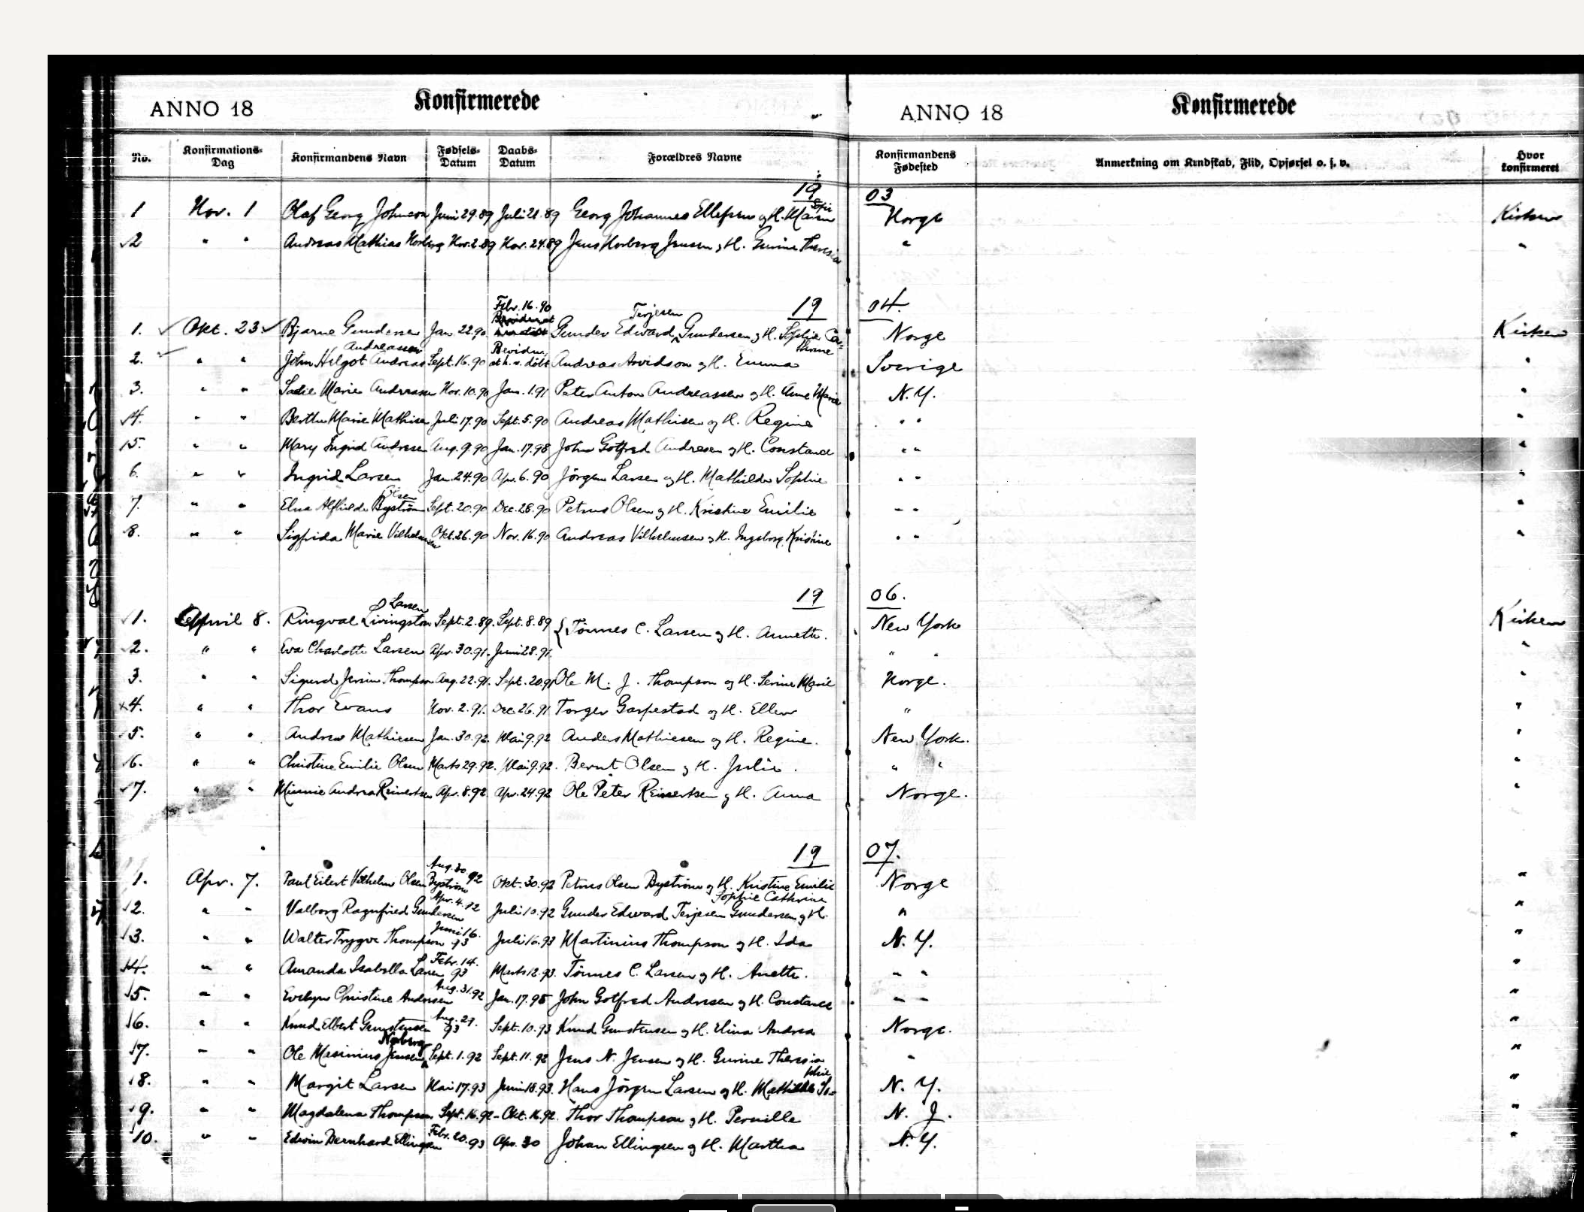 ANNO 18 Konfirmerede ANNO 18 Konfirmerede
No. Konfirmations-Dag Konfirmandens Navn Fødsels-Datum Daabs-Datum Forældres Navne Konfirmandens Fødested Anmerkning om Kundskab, Flid, Opførsel o. s. v. Hvor konfirmeret
19 03
1 Nov. 1 Olaf Georg Johnson Juni 29.89 Juli 21.89 Georg Johannes Ellefsen og H. Norge Kirken
2 " " Andreas Mathias Norberg Nov. 2.89 Nov. 24.89 Jens Norberg Jensen og H. Gurine Theresia "
19 04.
1. Okt. 23 Bjarne Gundersen Jan 22.90 Febr. 16.90 Gunder Edward Terjesen Gundersen og H. Sophie Norge Kirken
2. " " John Helgot Andreas Andreassen Sept. 16.90 Andreas Arvidson og H. Emma Sverige "
3. " " Sadie Marie Andreassen Nov. 10.90 Jan. 1.91 Peter Anton Andreassen og H. Anne Marie N.Y. "
4. " " Bertha Marie Mathisen Juli 17.90 Sept. 5.90 Andreas Mathisen og H. Regine " " "
5. " " Mary Ingrid Andresen Aug. 9.90 Jan. 17.98 John Gotfred Andresen og H. Constance " " "
6. " " Ingrid Larsen Jan. 24.90 Apr. 6.90 Jørgen Larsen og H. Mathilde Sophie " " "
7. " " Elna Alfhilde Olsen Byström Sept. 20.90 Dec. 28.90 Petrus Olsen og H. Kristine Emilie " " "
8. " " Sigfrida Marie Vilhelmsen Okt. 26.90 Nov. 16.90 Andreas Vilhelmsen og H. Ingeborg Kristine " " "
19 06.
1. April 8. Ringval Livingston Larsen Sept. 2.89. Sept. 8.89 Tönnes C. Larsen og H. Annette. New York Kirken
2. " " Eva Charlotte Larsen Apr. 30.91. Juni 28.91. " " "
3. " " Sigurd Thompson Aug. 22.91. Sept. 20.91 Ole M. J. Thompson og H. Serine Marie Norge. "
4. " " Thor Evans Nov. 2.91. Dec. 26.91 Torger Garpestad og H. Ellen " "
5. " " Andrew Mathiesen Jan. 30.92. Mai 9.92 Anders Mathiesen og H. Regine. New York. "
6. " " Christine Emilie Olsen Marts 29.92. Mai 9.92. Bernt Olsen og H. Julie. " " "
7. " " Minnie Andrea Reinertsen Apr. 8.92 Apr. 24.92 Ole Peter Reinertsen og H. Anna Norge. "
19 07.
1. Apr. 7. Paul Eilert Vilhelm Olsen Byström Aug. 30 92 Okt. 30.92 Petrus Olsen Byström og H. Kristine Emilie Norge "
2. " " Valborg Ragnfried Gundersen Apr. 4.92 Juli 10.92 Gunder Edward Terjesen Gundersen og H. Sophie Cathrine " "
3. " " Walter Trygve Thompson Juni 16. 93 Juli 16.93 Martinius Thompson og H. Ida N.Y. "
4. " " Amanda Isabella Larsen Febr. 14. 93 Marts 12.93. Tönnes C. Larsen og H. Anette. " " "
5. " " Evelyn Christine Andersen Aug. 31.92 Jan. 17.98 John Gotfred Andresen og H. Constance " " "
6. " " Knud Elbert Gunstensen Aug. 27. 93 Sept. 10.93 Knud Gunstensen og H. Elina Andrea Norge. "
7. " " Ole Mesinius Norberg Jensen Sept. 1.92 Sept. 11.92 Jens N. Jensen og H. Gurine Theresia " "
8. " " Margit Larsen Mai 17.93 Juni 18.93. Hans Jörgen Larsen og H. Mathilde Sophie N.Y. "
9. " " Magdalena Thompson Sept. 16.92 Okt. 16.92. Thor Thompson og H. Pernille N.J. "
10. " " Edwin Bernhard Ellingsen Febr. 20.93 Apr. 30 Johan Ellingsen og H. Martha N.Y. "